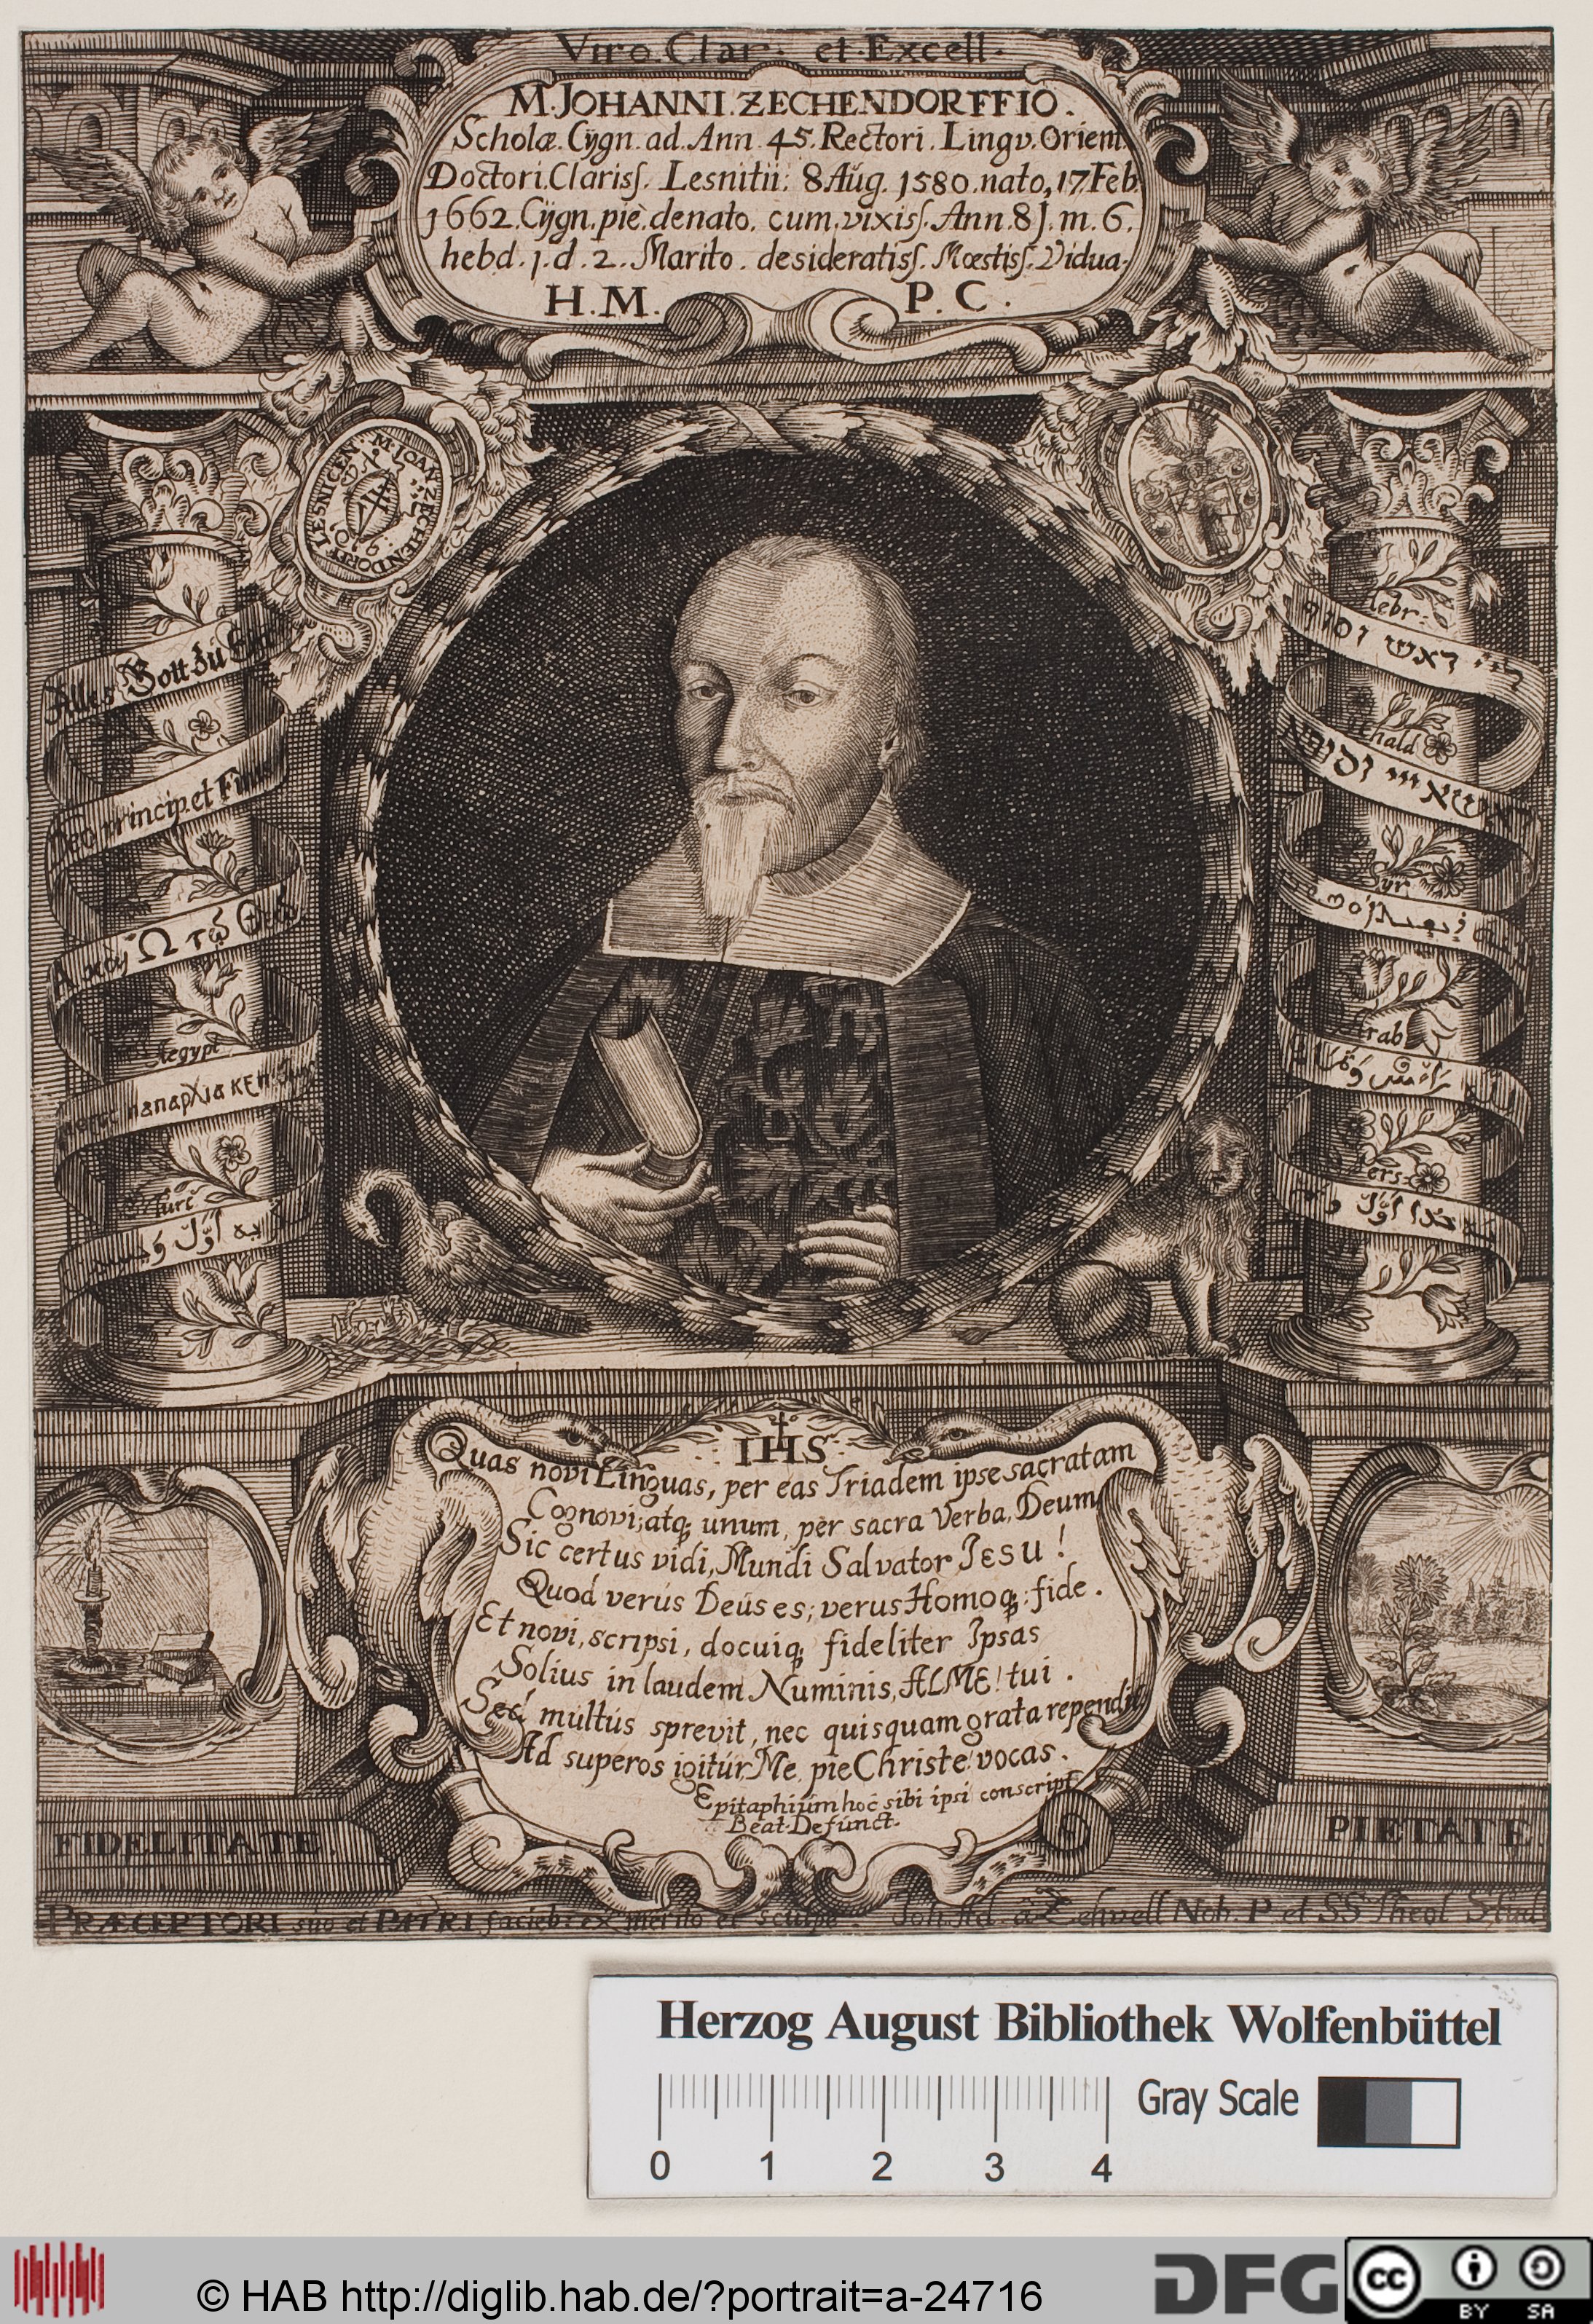 Viro. Clar. et. Excell.
M. JOHANNI. ZECHENDORFFIO.
Scholæ. Cygn. ad. Ann. 45. Rectori. Lingv. Orient.
Doctori. Clariſſ. Lesnitii. 8 Aug. 1580. nato, 17 Feb.
1662. Cygn. piè. denato. cum. vixiſſ. Ann. 81. m. 6.
hebd. 1. d. 2. Marito. desideratiſſ. Mœstiſſ. Vidua.
H. M. P. C.
M. JOAN ZECHENDORF LESNICEN
Alles Gott zu
Deo princip. et Fini
Α καὶ Ω τῷ Θεῷ
Aegypt.
Turc.
Hebr.
ראש וסוף
Chald
Syr.
Arab
Pers.
IHS
Quas novi Linguas, per eas Triadem ipse sacratam
Cognovi; atq; unum, per sacra Verba, Deum,
Sic certus vidi, Mundi Salvator JESU!
Quod verus Deus es; verus Homoq; fide.
Et novi, scripsi, docuiq; fideliter Ipsas
Solius in laudem Numinis, ALME! tui.
Sed multus sprevit, nec quisquam grata rependit
Ad superos igitur Me, pie Christe! vocas.
Epitaphium hoc sibi ipsi conscripſ.
Beat. Defunct.
FIDELITATE.
PIETATE.
PRÆCEPTORI suo et PATRI facieb: ex merito et sculps. Joh. Ad. à Zehvell Nob. P. et SS Theol. Stud
Herzog August Bibliothek Wolfenbüttel
0 1 2 3 4
Gray Scale
© HAB http://diglib.hab.de/?portrait=a-24716
DFG
cc BY SA